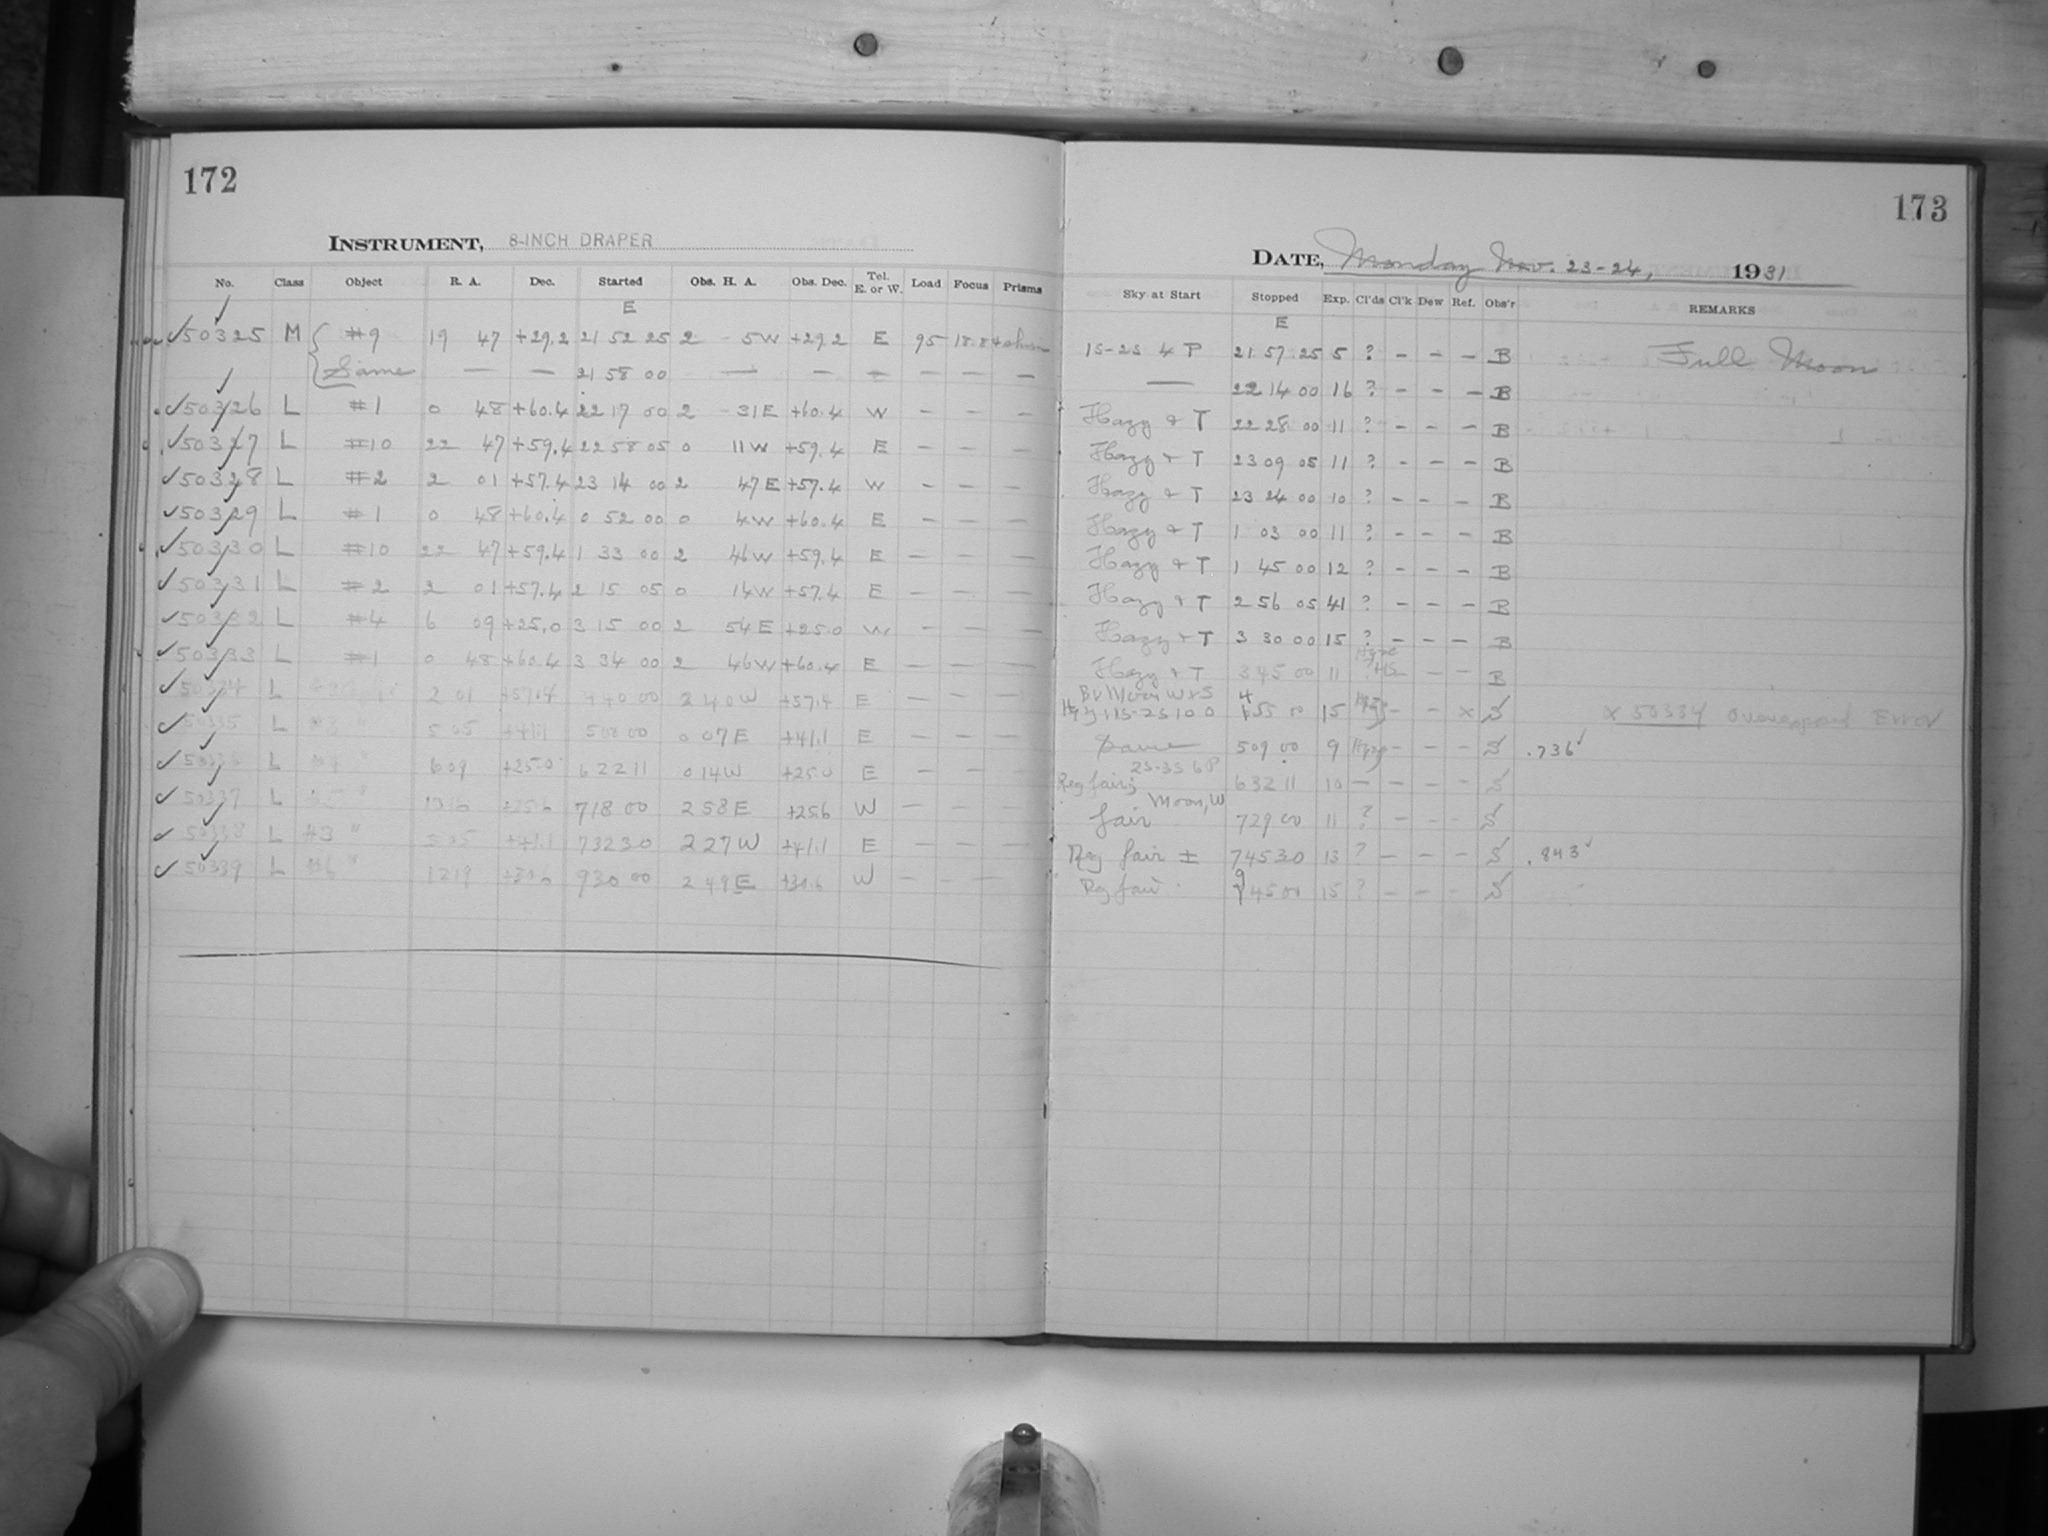 172
INSTRUMENT, 8-INCH DRAPER
No. Class Object R. A. Dec. Started Obs. H. A. Obs. Dec. Tel. E. or W. Load Focus Prisms
E
50325 M #9 19 47 +29.2 21 52 25 2 5W +29.2 E 95
Same — — 21 58 00 — — — — — —
50326 L #1 0 48 +60.4 22 17 00 2 31E +60.4 W — — —
50327 L #10 22 47 +59.4 22 58 05 0 11W +59.4 E — — —
50328 L #2 2 01 +57.4 23 14 00 2 47E +57.4 W — — —
50329 L #1 0 48 +60.4 0 52 00 0 4W +60.4 E — — —
50330 L #10 22 47 +59.4 1 33 00 2 46W +59.4 E — — —
50331 L #2 2 01 +57.4 2 15 05 0 14W +57.4 E — — —
50332 L #4 6 09 +25.0 3 15 00 2 54E +25.0 W — — —
50333 L #1 0 48 +60.4 3 34 00 2 46W +60.4 E — — —
50334 L 2 01 +57.4 4 40 00 2 40W +57.4 E — — —
50335 L #3 " 5 05 +41.1 5 00 00 0 07E +41.1 E — — —
50336 L #4 " 6 09 +25.0 6 22 11 0 14W +25.0 E — — —
50337 L " +25.6 7 18 00 2 58E +25.6 W — — —
50338 L #3 " 5 05 +41.1 7 32 30 2 27W +41.1 E — — —
50339 L #6 " 12 19 +30.6 9 30 00 2 49E +30.6 W — — —
173
DATE, Monday Nov. 23-24, 1931
Sky at Start Stopped Exp. Cl'ds Cl'k Dew Ref. Obs'r REMARKS
E
1S-2S 4 P 21 57 25 5 ? — — — B Full Moon
— 22 14 00 16 ? — — — B
Hazy & T 22 28 00 11 ? — — — B
Hazy & T 23 09 05 11 ? — — — B
Hazy & T 23 24 00 10 ? — — — B
Hazy & T 1 03 00 11 ? — — — B
Hazy & T 1 45 00 12 ? — — — B
Hazy & T 2 56 05 41 ? — — — B
Hazy & T 3 30 00 15 ? — — — B
Hazy & T 3 45 00 11 ? — — B
Moon W & S
4 55 00 15 — — x S x 50334 Error
Same 5 09 00 9 — — — S .736
2S-3S 6P
Reg fair; 6 32 11 10 — — — — S
Moon, W
fair 7 29 00 11 ? — — — S
Reg fair ± 7 45 30 13 ? — — — S .843
Reg fair 9 45 00 15 ? — — — S